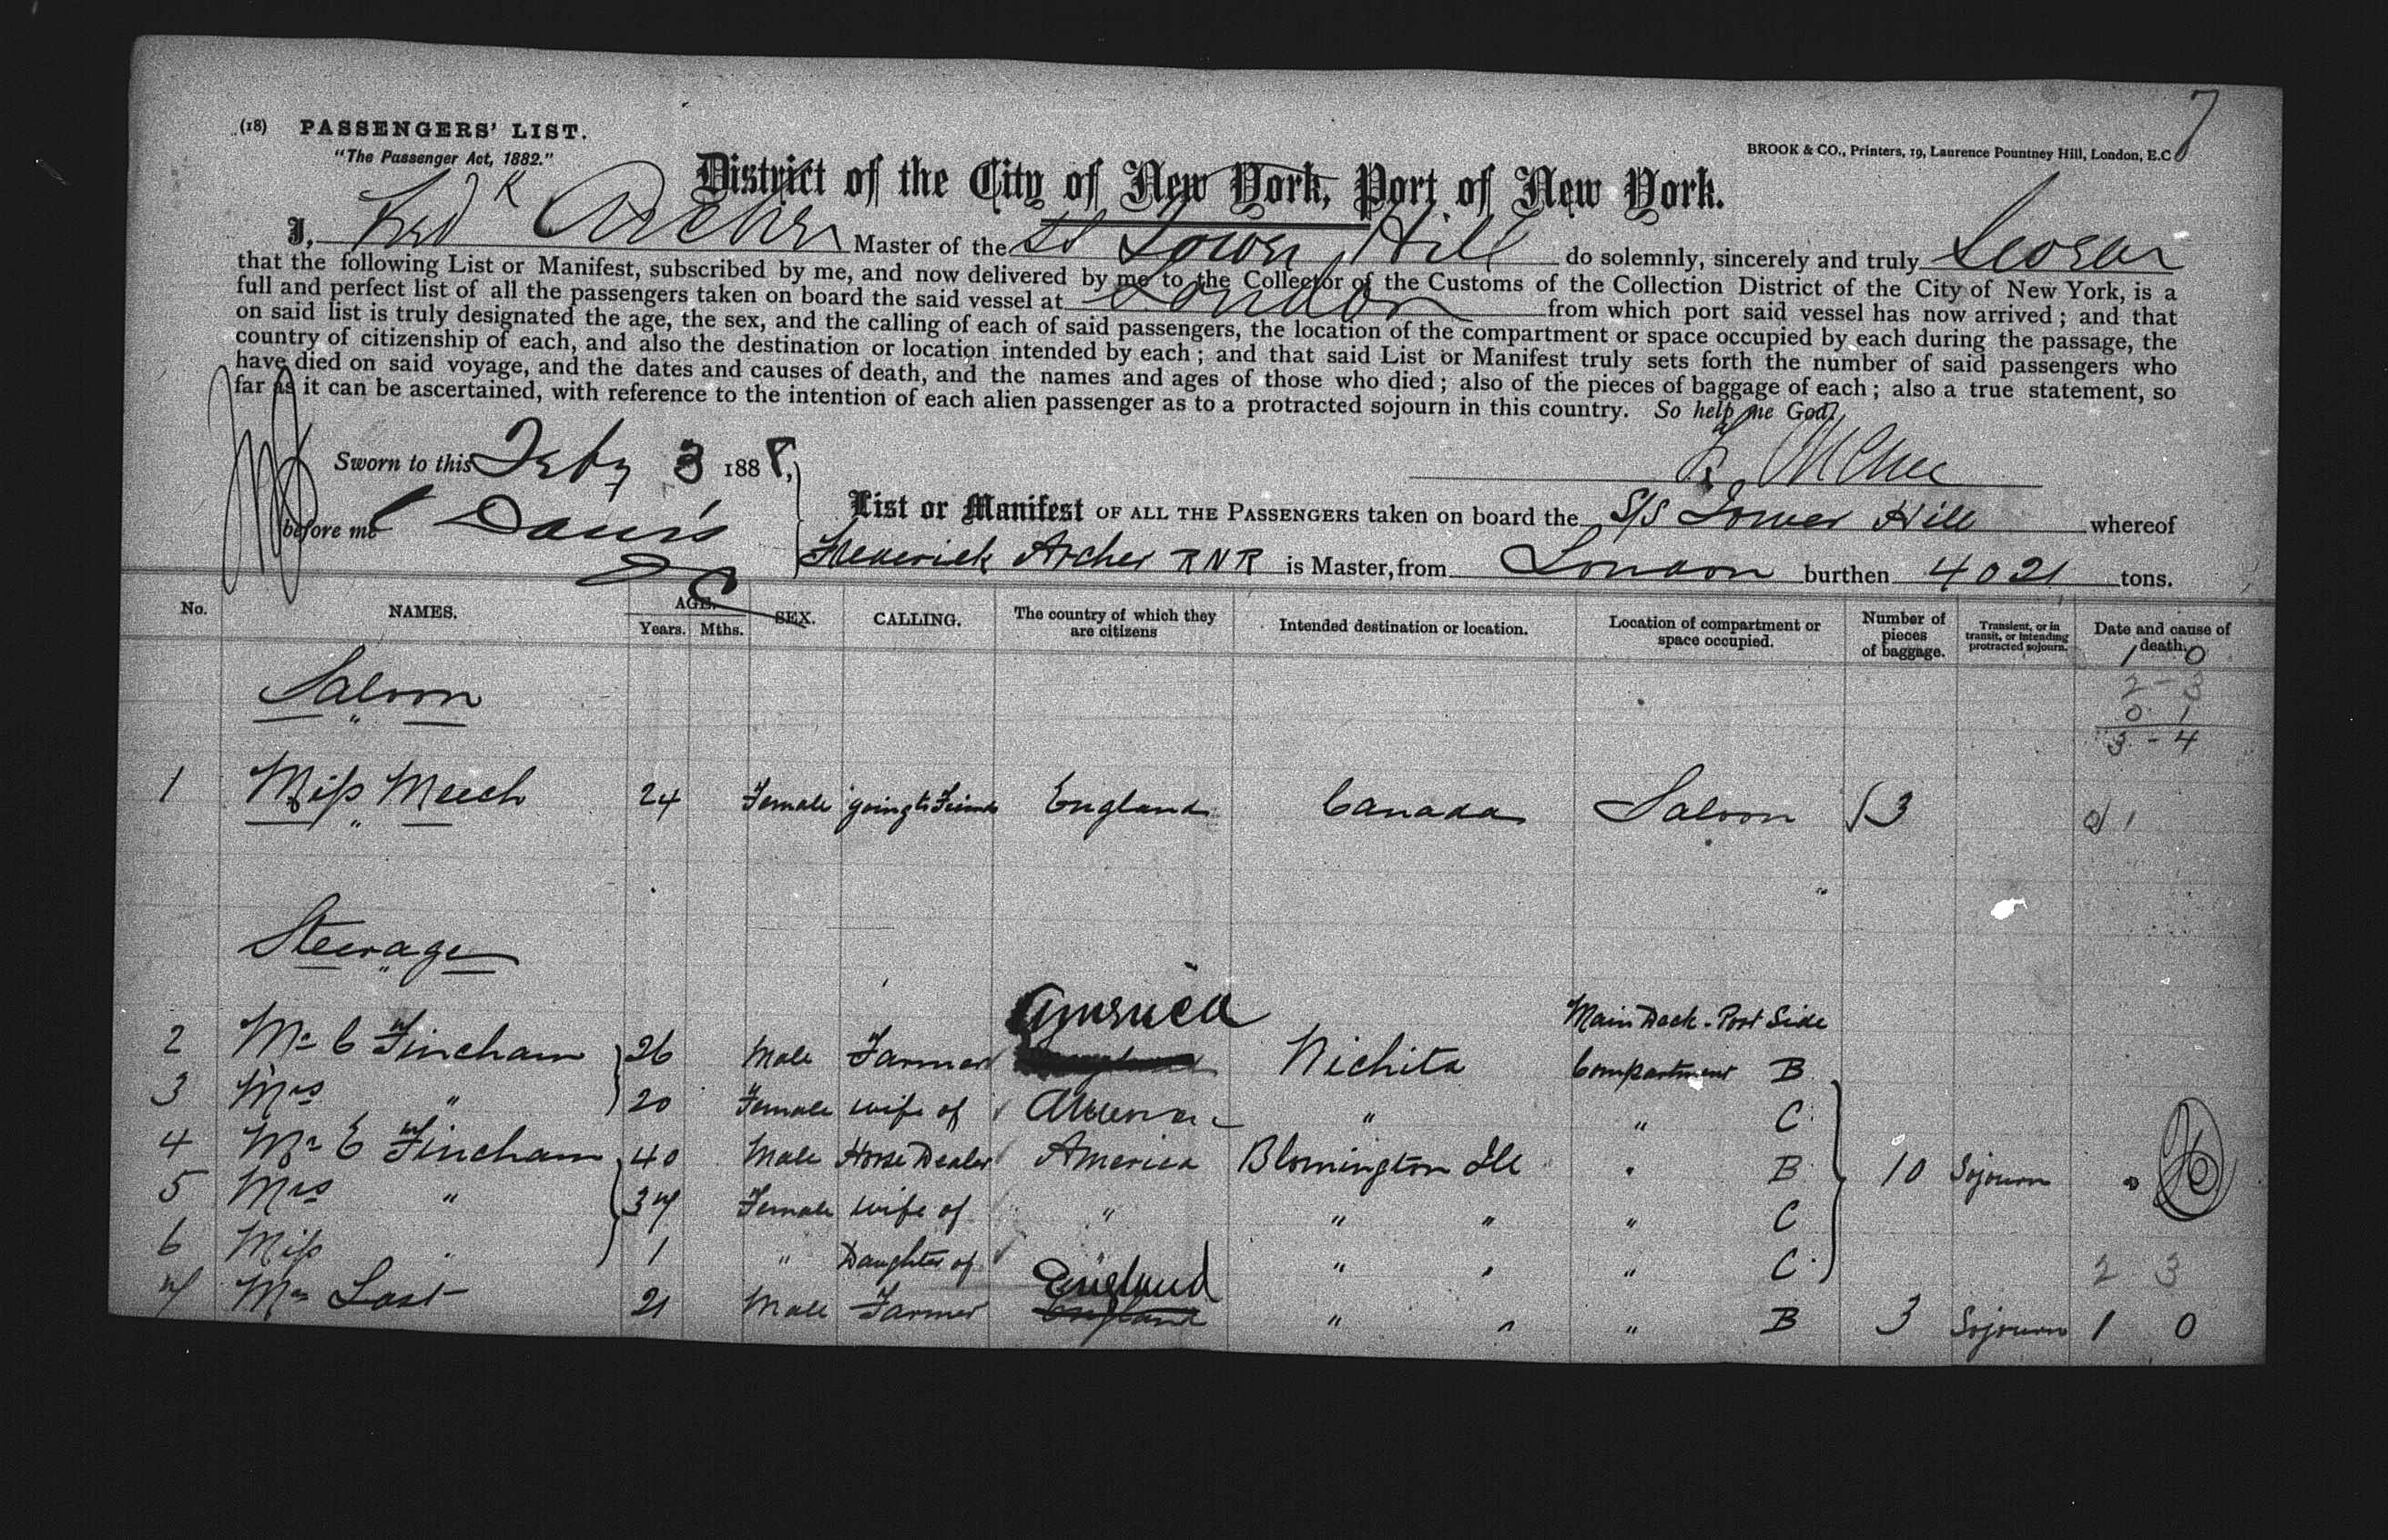 7
(18) PASSENGERS' LIST.
BROOK & CO., Printers, 19, Laurence Pountney Hill, London, E.C
"The Passenger Act, 1882."
District of the City of New York, Port of New York.
I, Fredk Archer Master of the SS Tower Hill do solemnly, sincerely and truly Swear
that the following List or Manifest, subscribed by me, and now delivered by me to the Collector of the Customs of the Collection District of the City of New York, is a
full and perfect list of all the passengers taken on board the said vessel at London from which port said vessel has now arrived; and that
on said list is truly designated the age, the sex, and the calling of each of said passengers, the location of the compartment or space occupied by each during the passage, the
country of citizenship of each, and also the destination or location intended by each; and that said List or Manifest truly sets forth the number of said passengers who
have died on said voyage, and the dates and causes of death, and the names and ages of those who died; also of the pieces of baggage of each; also a true statement, so
far as it can be ascertained, with reference to the intention of each alien passenger as to a protracted sojourn in this country. So help me God,
Sworn to this Feby 3 1888,
before me Davis
List or Manifest OF ALL THE PASSENGERS taken on board the S/S Tower Hill whereof
Frederick Archer RNR is Master, from London burthen 4021 tons.
No. NAMES. AGE. Years. Mths. SEX. CALLING. The country of which they are citizens Intended destination or location. Location of compartment or space occupied. Number of pieces of baggage. Transient, or in transit, or intending protracted sojourn. Date and cause of death.
1 0
2 - 3
0 1
3 - 4
Saloon
1 Miss Meech 24 Female going to Friends England Canada Saloon 3 1
Steerage
America Main Deck - Port Side
2 Mr C Fincham 26 Male Farmer Wichita Compartment B
3 Mrs " 20 Female wife of America " " C
4 Mr E Fincham 40 Male Horse Dealer America Blomington Ill " B 10 Sojourn
5 Mrs " 37 Female wife of " " " " C
6 Miss " 1 " Daughter of " " " C 2 3
England
7 Mr Last 21 Male Farmer England " " " B 3 Sojourn 1 0